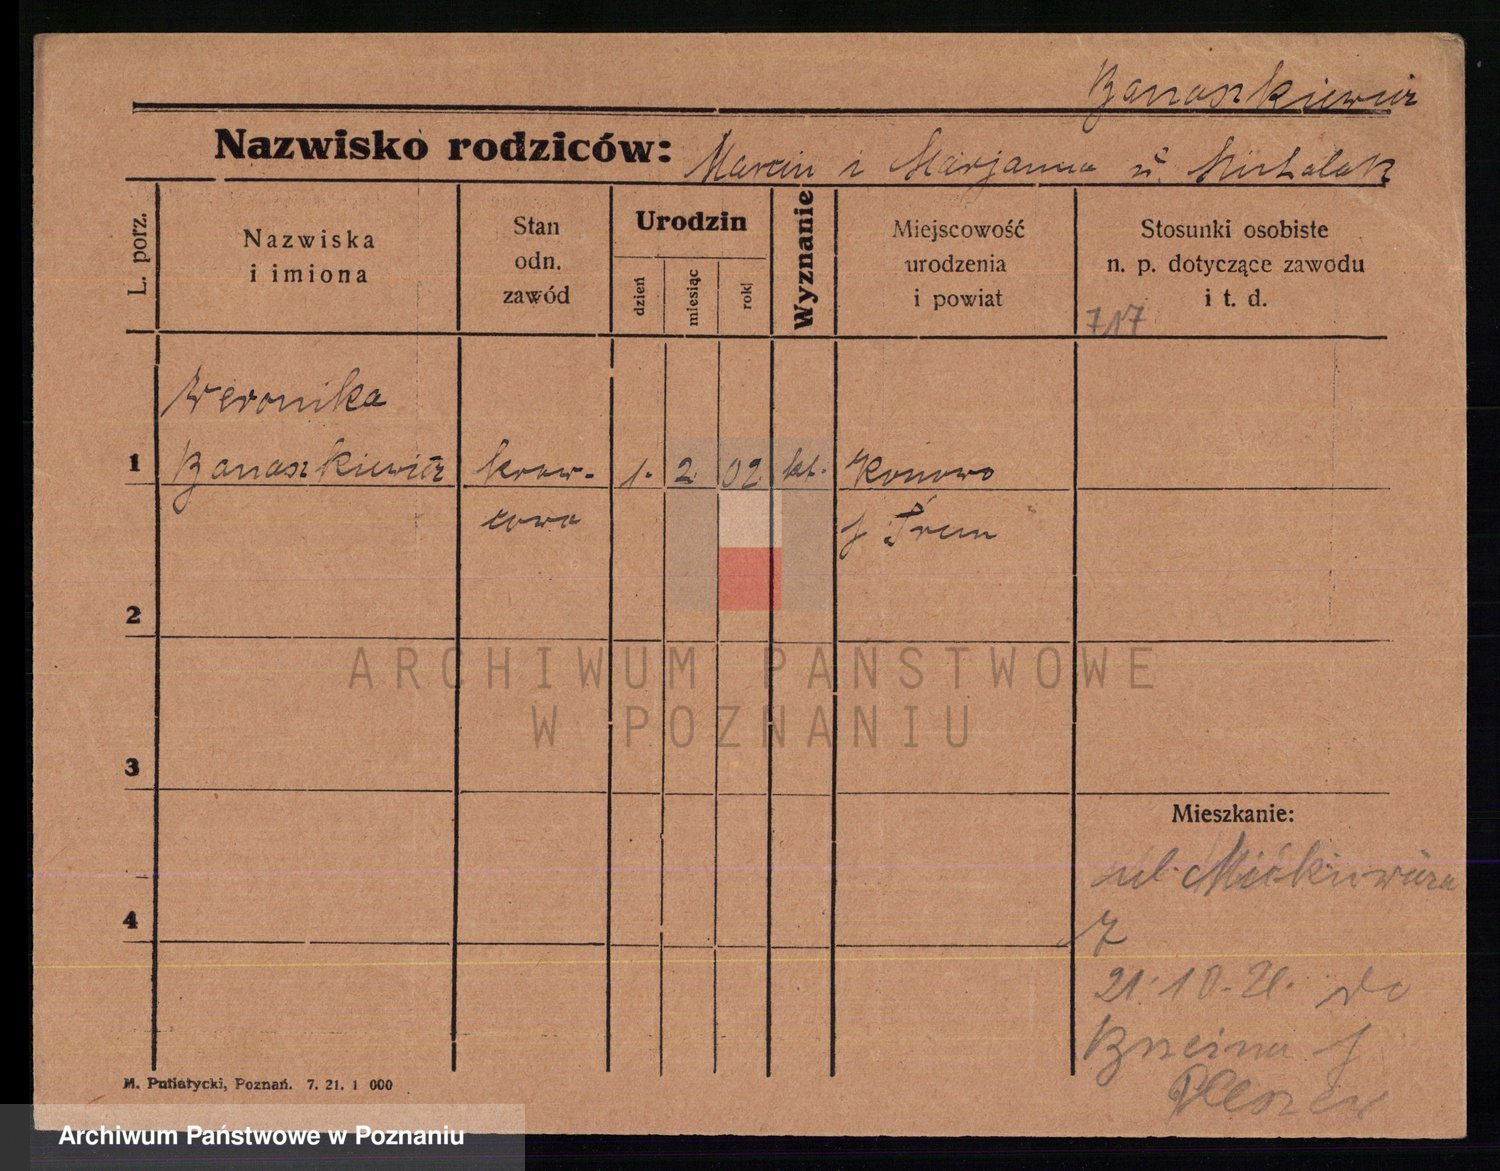 Banaszkiewicz
Nazwisko rodziców: Marcin i Marjanna u. Michalak
L. porz.
Nazwiska
i imiona
Stan
odn.
zawód
Urodzin
dzień
miesiąc
rok
Wyznanie
Miejscowość
urodzenia
i powiat
Stosunki osobiste
n. p. dotyczące zawodu
i t. d.
717
Weronika
1 Banaszkiewicz kraw- 1. 2 02 kt. Konowo
cowa p. Śrem
2
ARCHIWUM PAŃSTWOWE
W POZNANIU
3
Mieszkanie:
ul. Mickiewicza
4
7
21.10.21. do
p
Pleszew
M. Putiatycki, Poznań. 7. 21. 1 000
Archiwum Państwowe w Poznaniu